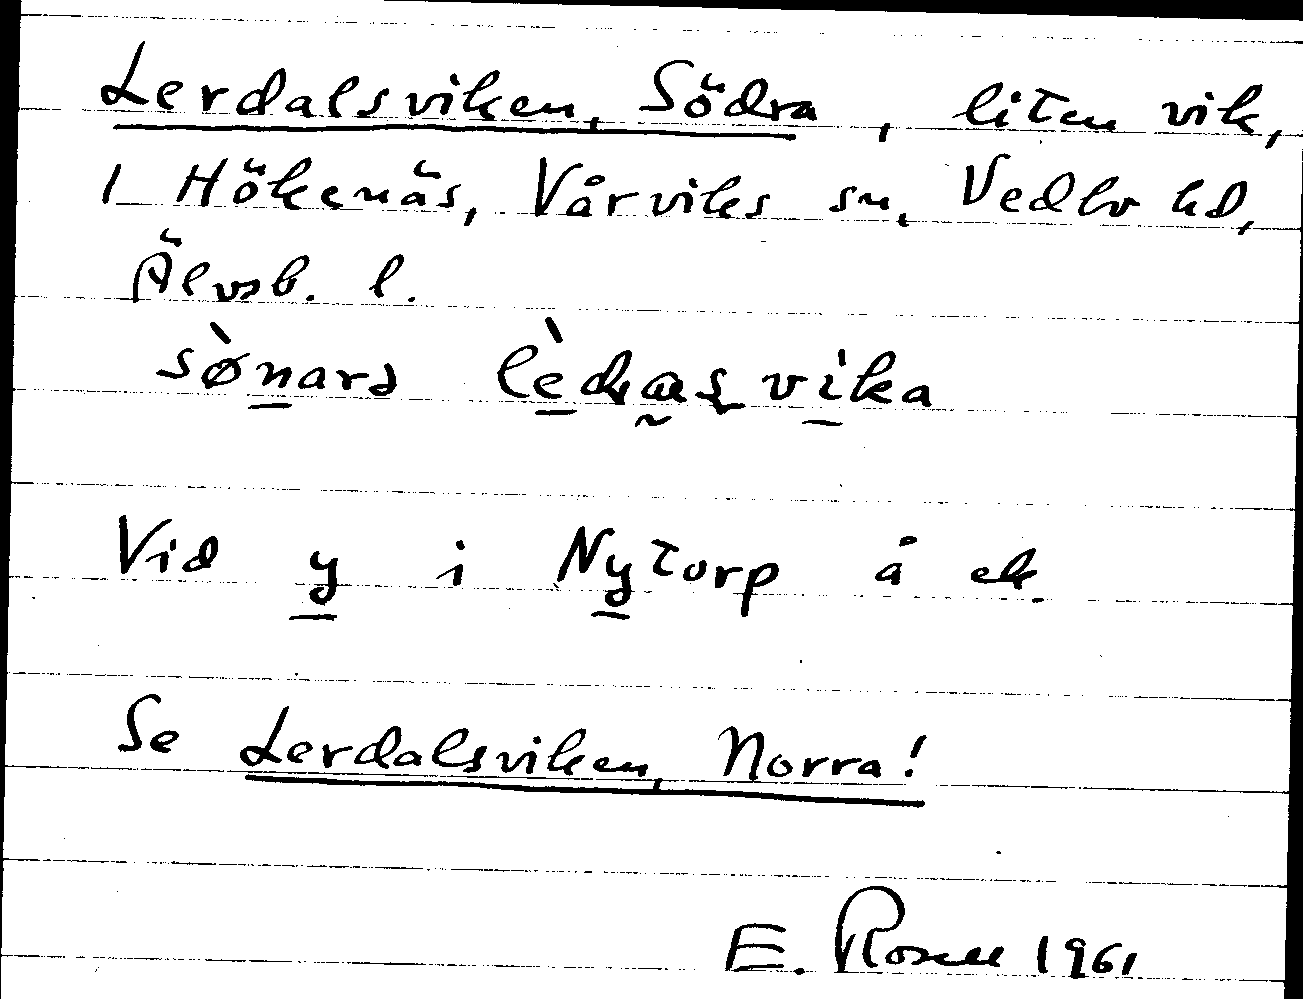 Lerdalsviken, Södra, liten vik,
i Hökenäs, Vårviks sn, Vedbo hd,
Älvsb. l.
Vid y i Nytorp å ek.
Se Lerdalsviken, Norra!
E. Rosell 1961